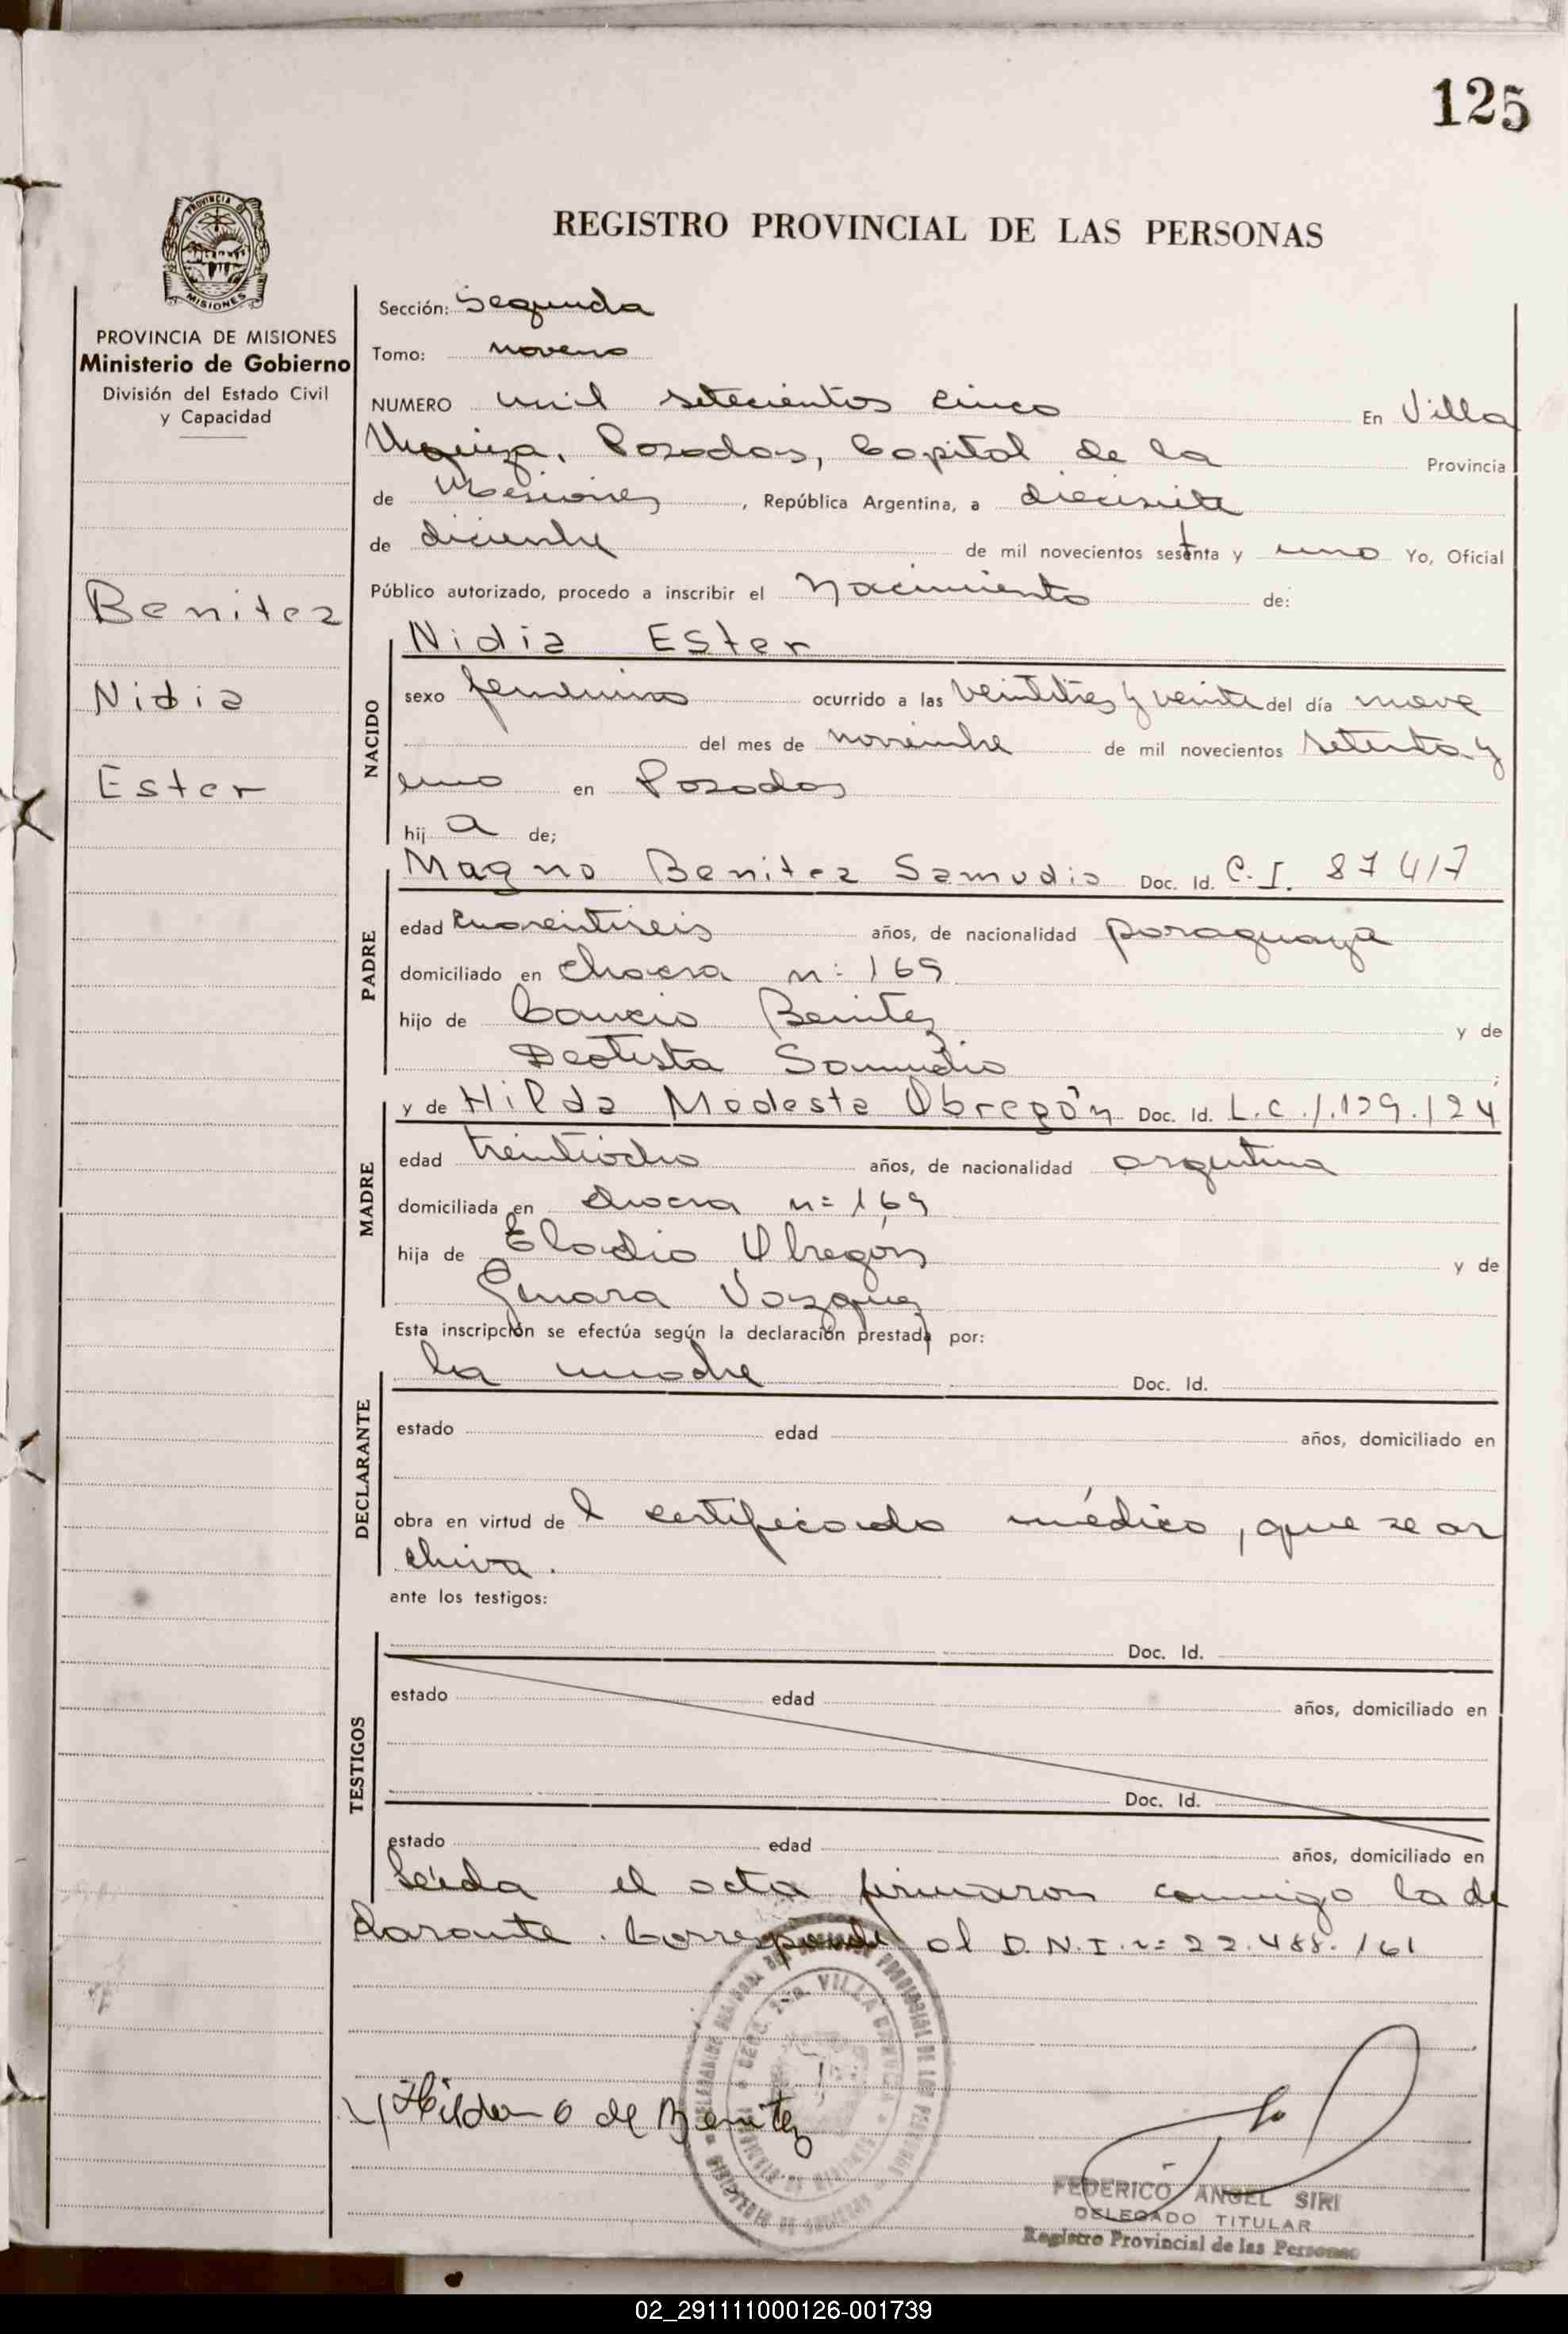 125
PROVINCIA DE MISIONES
REGISTRO PROVINCIAL DE LAS PERSONAS
PROVINCIA DE MISIONES
Ministerio de Gobierno
División del Estado Civil
y Capacidad
Benitez
Nidia
Ester
Sección: Segunda
Tomo: noveno
NUMERO mil setecientos cinco En Villa
Urquiza, Posadas, Capital de la Provincia
de Misiones, República Argentina, a diecisiete
de diciembre de mil novecientos setenta y uno Yo, Oficial
Público autorizado, procedo a inscribir el Nacimiento de:
NACIDO
Nidia Ester
sexo femenino ocurrido a las veintitres y veinte del día nueve
del mes de noviembre de mil novecientos setenta y
uno en Posadas
hij a de;
PADRE
Magno Benitez Samudio Doc. Id. C. I. 87417
edad cuarentiseis años, de nacionalidad paraguaya
domiciliado en chacra n: 169
hijo de Cancio Benitez y de
Deotista Samudio ;
MADRE
y de Hilda Modesta Obregón Doc. Id. L.C. 1.129.124
edad treintiocho años, de nacionalidad argentina
domiciliada en chacra n= 169
hija de Eladio Obregón y de
Genara Vazquez
Esta inscripción se efectúa según la declaración prestada por:
DECLARANTE
la madre Doc. Id.
estado edad años, domiciliado en
obra en virtud de l certificado médico, que se ar
chiva.
ante los testigos:
TESTIGOS
Doc. Id.
estado edad años, domiciliado en
Doc. Id.
estado edad años, domiciliado en
Leída el acta firmaron conmigo la de
clarante. Corresponde al D.N.I. n= 22.488.161
Hilda O de Benitez
FEDERICO ANGEL SIRI
DELEGADO TITULAR
Registro Provincial de las Personas
02_291111000126-001739